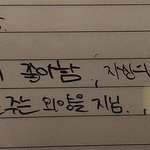 좋아함, 자신의
주는 외양을 지님.